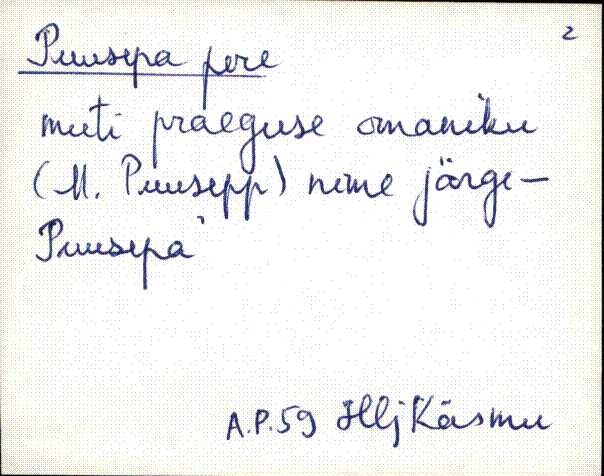 2
Puusepa pere
meeti praeguse omaniku
(M. Puusepp) nime järge –
Puusepa'
A.P.59 HljKäsmu